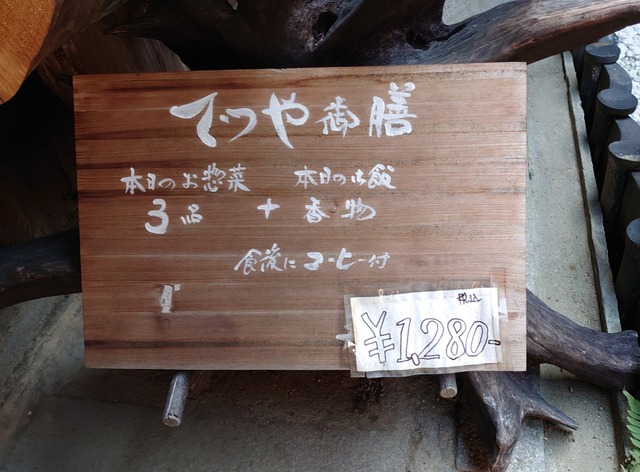 てつや御膳
本日のお惣菜 本日のお飯
3品 + 香物
食後にコーヒー付
税込
¥1,280-